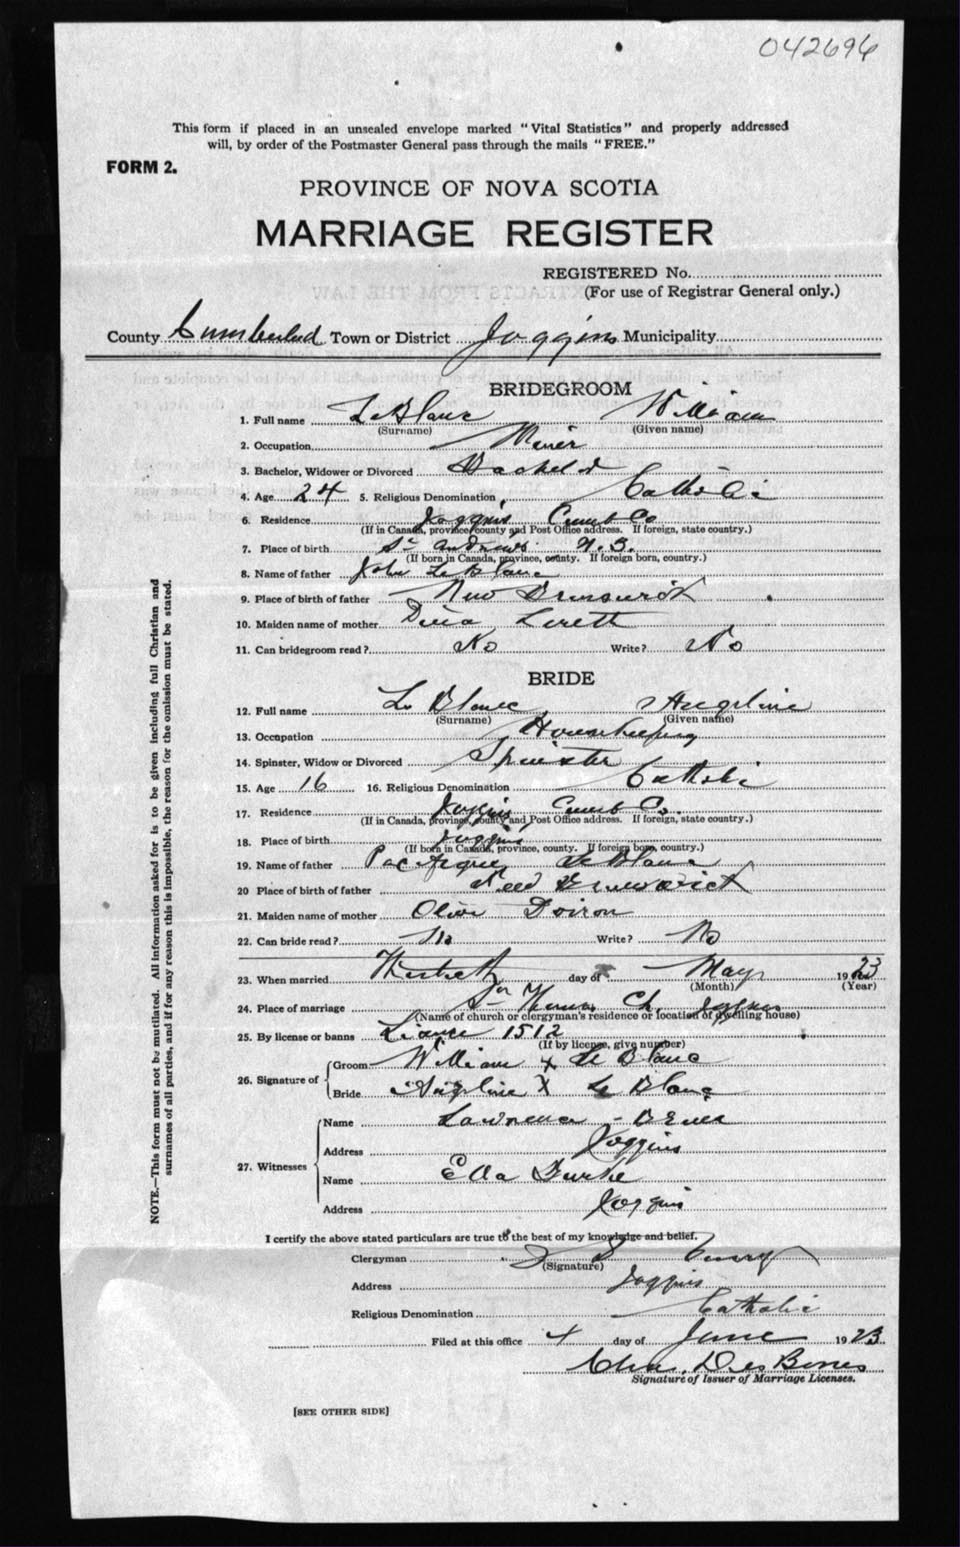 042696
This form if placed in an unsealed envelope marked "Vital Statistics" and properly addressed
will, by order of the Postmaster General pass through the mails "FREE."
FORM 2.
PROVINCE OF NOVA SCOTIA
MARRIAGE REGISTER
REGISTERED No.
(For use of Registrar General only.)
County Cumberland Town or District Joggins Municipality
BRIDEGROOM
1. Full name LeBlanc William
(Surname) (Given name)
2. Occupation Miner
3. Bachelor, Widower or Divorced Bachelor
4. Age 24 5. Religious Denomination Catholic
6. Residence Joggins Cumb Co
(If in Canada, province, county and Post Office address. If foreign, state country.)
7. Place of birth St Andrews N.B.
(If born in Canada, province, county. If foreign born, country.)
8. Name of father John LeBlanc
9. Place of birth of father New Brunswick
10. Maiden name of mother
11. Can bridegroom read? No Write? No
BRIDE
12. Full name LeBlanc Angeline
(Surname) (Given name)
13. Occupation Housekeeping
14. Spinster, Widow or Divorced Spinster
15. Age 16 16. Religious Denomination Catholic
17. Residence Joggins Cumb Co.
(If in Canada, province, county and Post Office address. If foreign, state country.)
18. Place of birth Joggins
(If born in Canada, province, county. If foreign born, country.)
19. Name of father LeBlanc
20 Place of birth of father New Brunswick
21. Maiden name of mother Olive Doiron
22. Can bride read? No Write? No
23. When married day of May 1923
(Month) (Year)
24. Place of marriage St Thomas Ch. Joggins
(Name of church or clergyman's residence or location of dwelling house)
25. By license or banns License 1512
(If by license, give number)
26. Signature of Groom William X LeBlanc
Bride Angeline X LeBlanc
27. Witnesses Name Lawrence
Address Joggins
Name Ella Burke
Address Joggins
I certify the above stated particulars are true to the best of my knowledge and belief.
Clergyman
(Signature)
Address Joggins
Religious Denomination Catholic
Filed at this office 4 day of June 1923
Chas. DesBarres
Signature of Issuer of Marriage Licenses.
[SEE OTHER SIDE]
NOTE.—This form must not be mutilated. All information asked for is to be given including full Christian and
surnames of all parties, and if for any reason this is impossible, the reason for the omission must be stated.